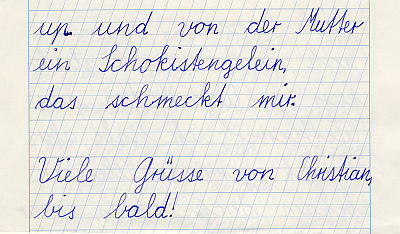 up und von der Mutter
ein Schokistengelein,
das schmeckt mir.
Viele Grüsse von Christian,
bis bald!